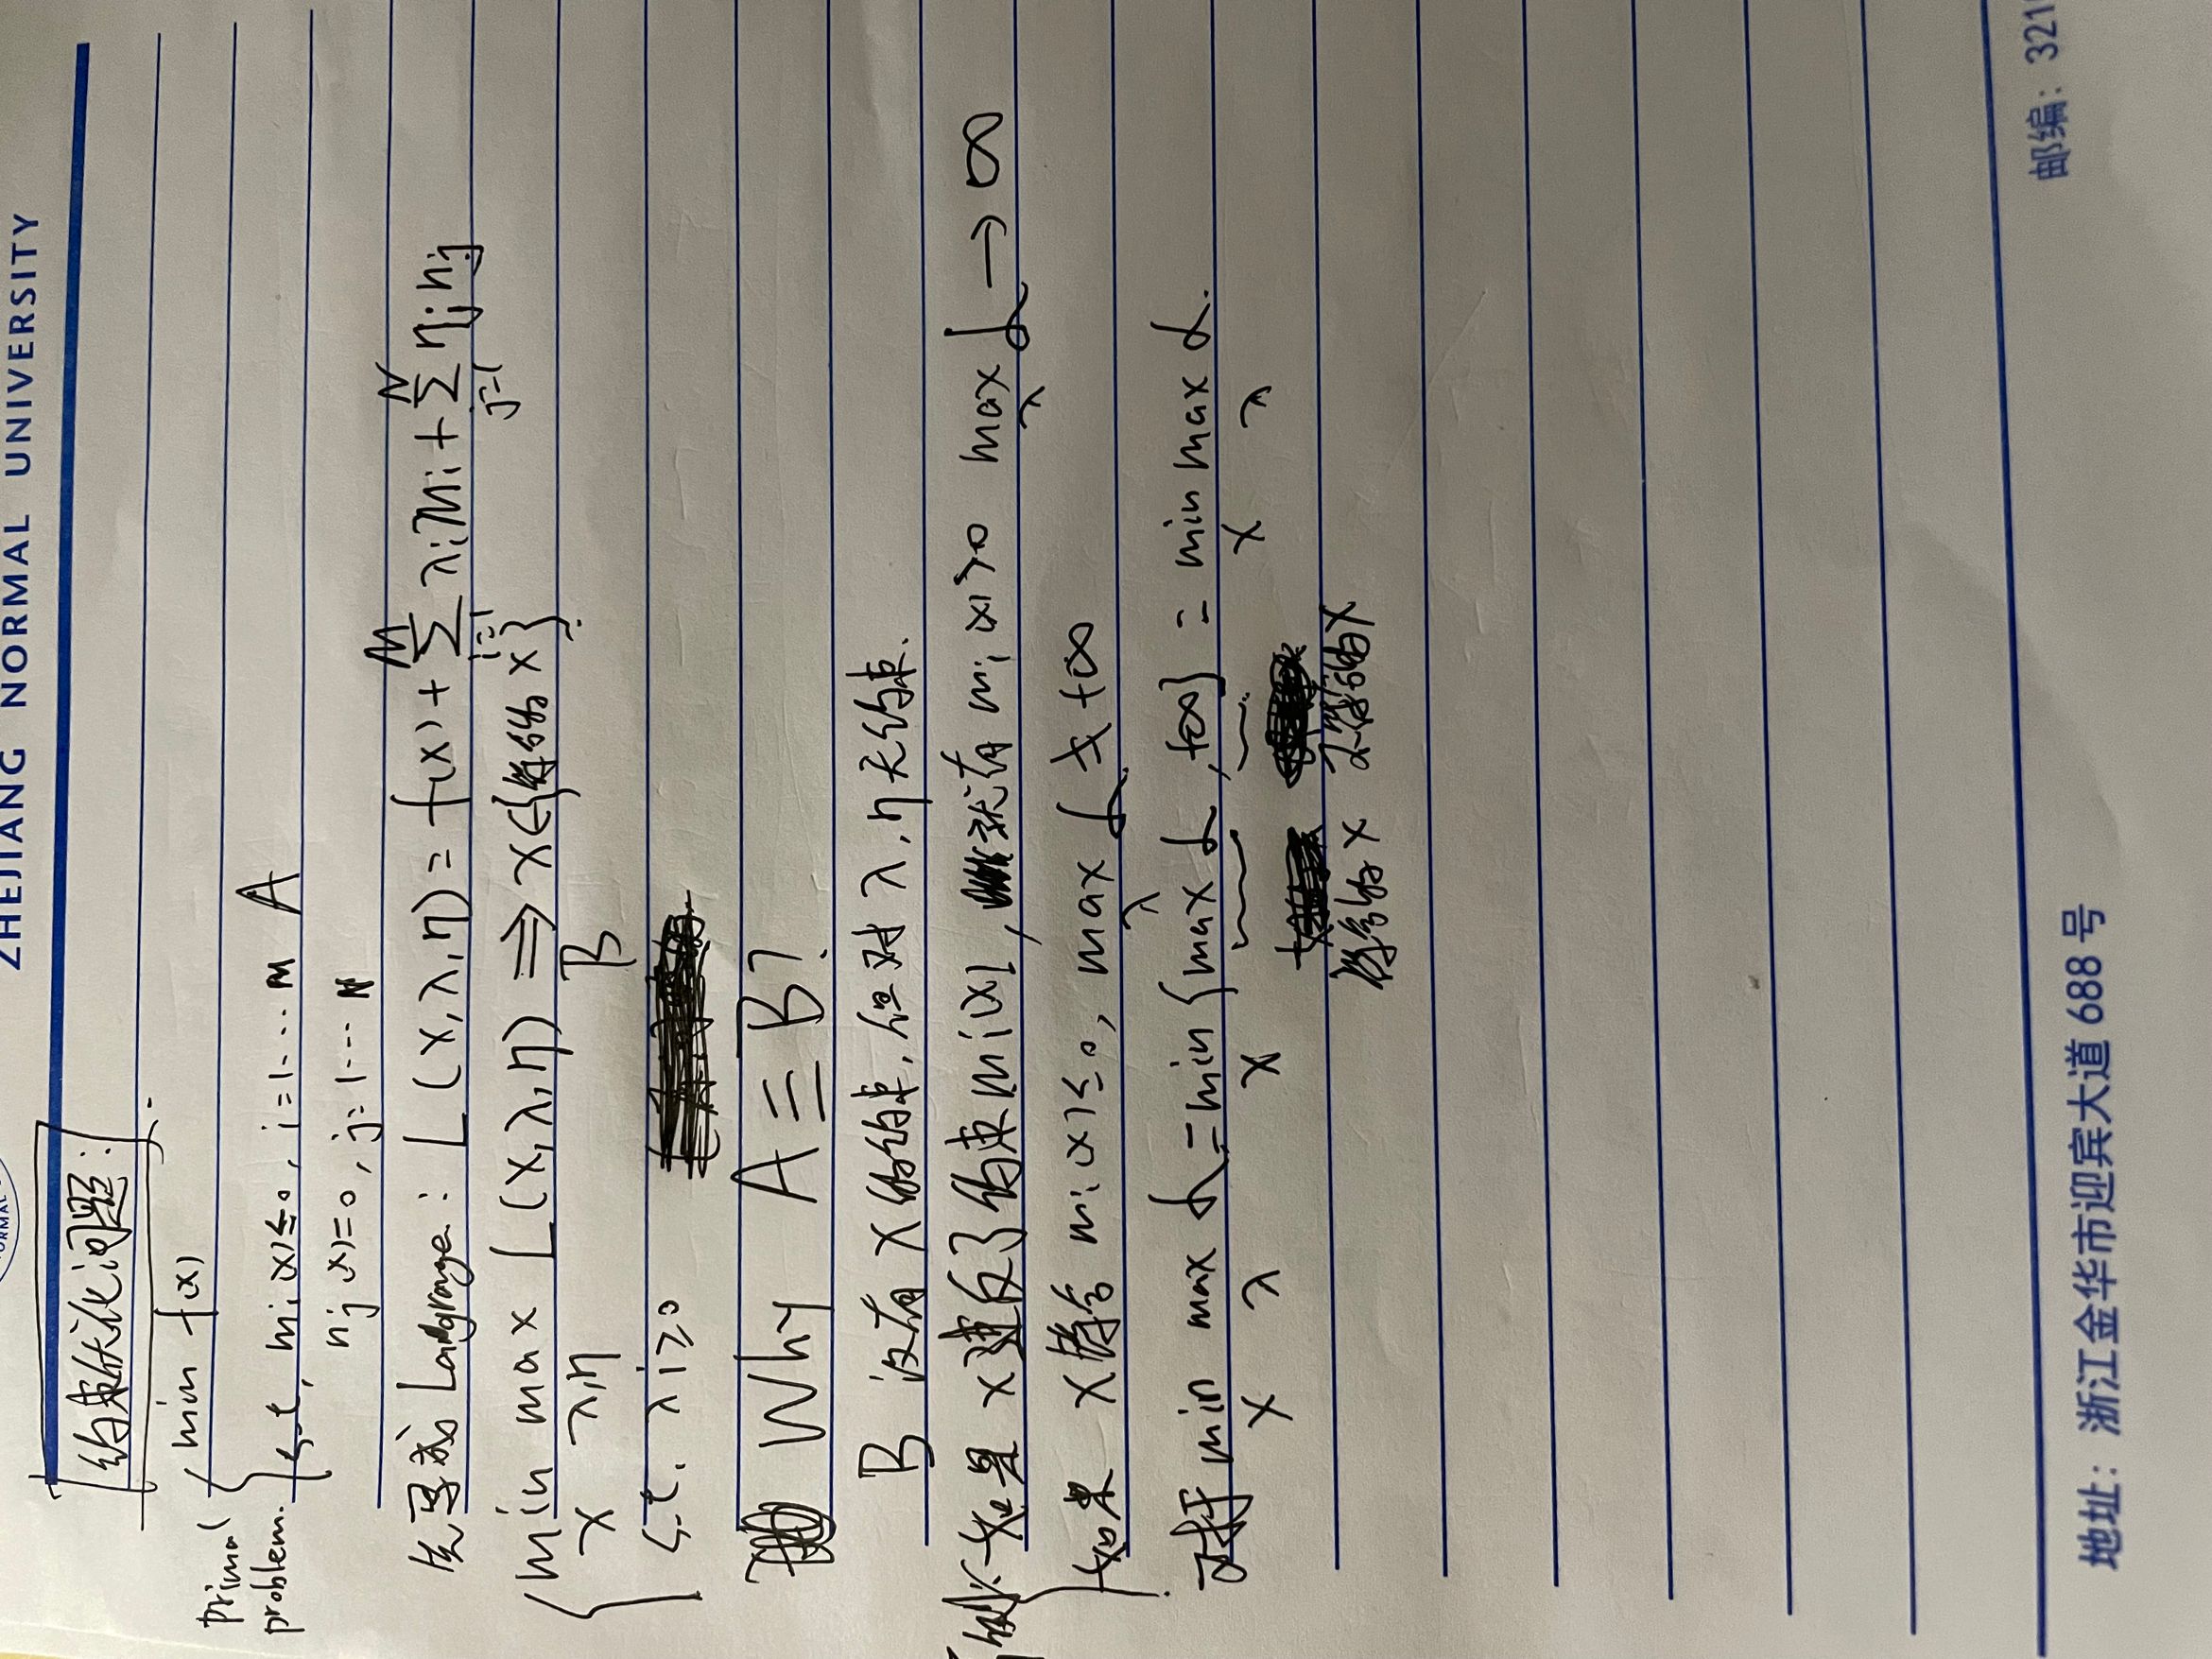 ZHEJIANG NORMAL UNIVERSITY
约束优化问题:
min f(x)
primal problem.
s.t. mi(x)≤0, i=1...M A
nj(x)=0, j=1...N
先写成 Langrange: L(x,λ,η)=f(x)+∑_{i=1}^{M} λi mi+∑_{j=1}^{N} ηj nj
min max L(x,λ,η) ⟹ x∈{符合的 x}
x λ,η B
s.t. λi≥0
Why A≡B?
B 没有 x 的约束, 但对 λ,η 无约束.
如果 x 违反了约束 mi(x), 就有 mi(x)>0 max_λ L → ∞
如果 x 符合 mi(x)≤0, max_λ L ≠ +∞
对于 min_x max_λ L = min_x {max L, +∞} = min_x max_λ L.
符合的 x 不符合的 x
邮编: 321
地址: 浙江金华市迎宾大道 688 号